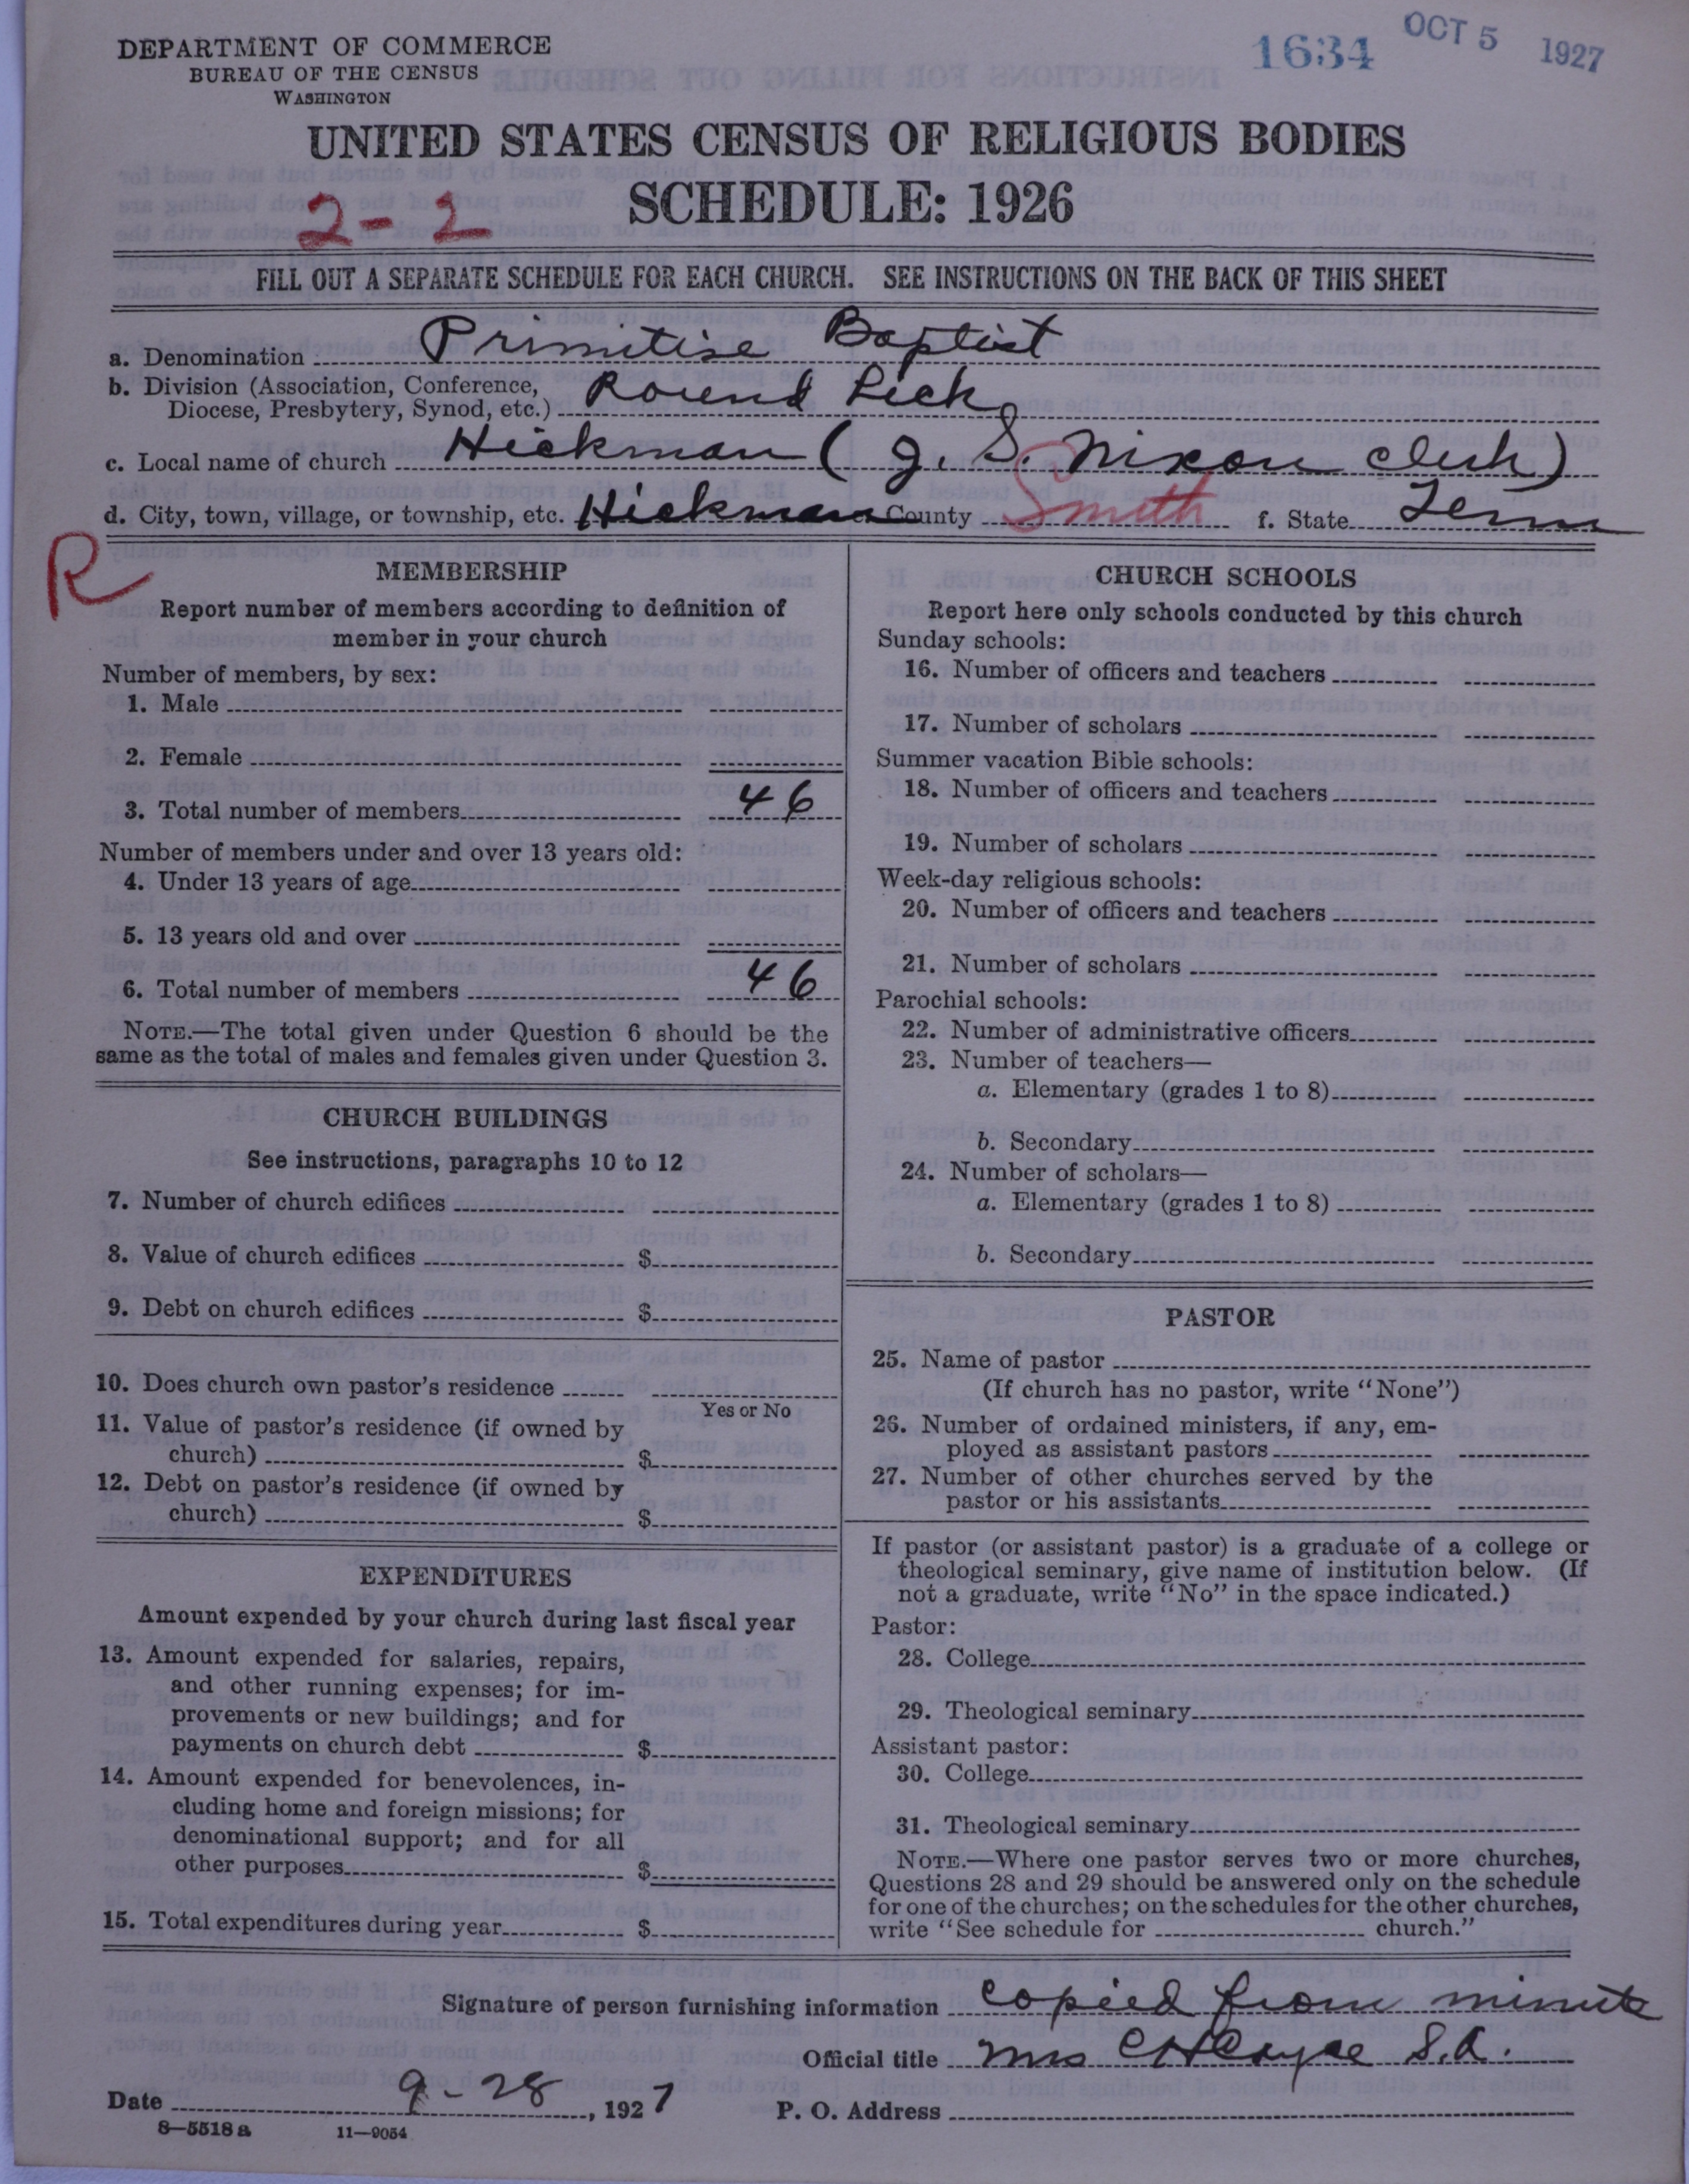 DEPARTMENT OF COMMERCE
BUREAU OF THE CENSUS
WASHINGTON
1634 OCT 5 1927
UNITED STATES CENSUS OF RELIGIOUS BODIES
SCHEDULE: 1926
2-2
FILL OUT A SEPARATE SCHEDULE FOR EACH CHURCH. SEE INSTRUCTIONS ON THE BACK OF THIS SHEET
a. Denomination Primitive Baptist
b. Division (Association, Conference,
Diocese, Presbytery, Synod, etc.) Round Lick
c. Local name of church Hickman (J. S. Nixon clerk)
d. City, town, village, or township, etc. Hickman County Smith f. State Tenn
R
MEMBERSHIP
Report number of members according to definition of
member in your church
Number of members, by sex:
1. Male
2. Female
3. Total number of members 46
Number of members under and over 13 years old:
4. Under 13 years of age
5. 13 years old and over
6. Total number of members 46
NOTE.—The total given under Question 6 should be the
same as the total of males and females given under Question 3.
CHURCH BUILDINGS
See instructions, paragraphs 10 to 12
7. Number of church edifices
8. Value of church edifices $
9. Debt on church edifices $
10. Does church own pastor's residence
Yes or No
11. Value of pastor's residence (if owned by
church) $
12. Debt on pastor's residence (if owned by
church) $
EXPENDITURES
Amount expended by your church during last fiscal year
13. Amount expended for salaries, repairs,
and other running expenses; for im-
provements or new buildings; and for
payments on church debt $
14. Amount expended for benevolences, in-
cluding home and foreign missions; for
denominational support; and for all
other purposes $
15. Total expenditures during year $
CHURCH SCHOOLS
Report here only schools conducted by this church
Sunday schools:
16. Number of officers and teachers
17. Number of scholars
Summer vacation Bible schools:
18. Number of officers and teachers
19. Number of scholars
Week-day religious schools:
20. Number of officers and teachers
21. Number of scholars
Parochial schools:
22. Number of administrative officers
23. Number of teachers—
a. Elementary (grades 1 to 8)
b. Secondary
24. Number of scholars—
a. Elementary (grades 1 to 8)
b. Secondary
PASTOR
25. Name of pastor
(If church has no pastor, write "None")
26. Number of ordained ministers, if any, em-
ployed as assistant pastors
27. Number of other churches served by the
pastor or his assistants
If pastor (or assistant pastor) is a graduate of a college or
theological seminary, give name of institution below. (If
not a graduate, write "No" in the space indicated.)
Pastor:
28. College
29. Theological seminary
Assistant pastor:
30. College
31. Theological seminary
NOTE.—Where one pastor serves two or more churches,
Questions 28 and 29 should be answered only on the schedule
for one of the churches; on the schedules for the other churches,
write "See schedule for church."
Signature of person furnishing information copied from minute
Official title Mrs C H Cayce S.A.
Date 9-28, 1927 P. O. Address
8—5518 a 11—9054